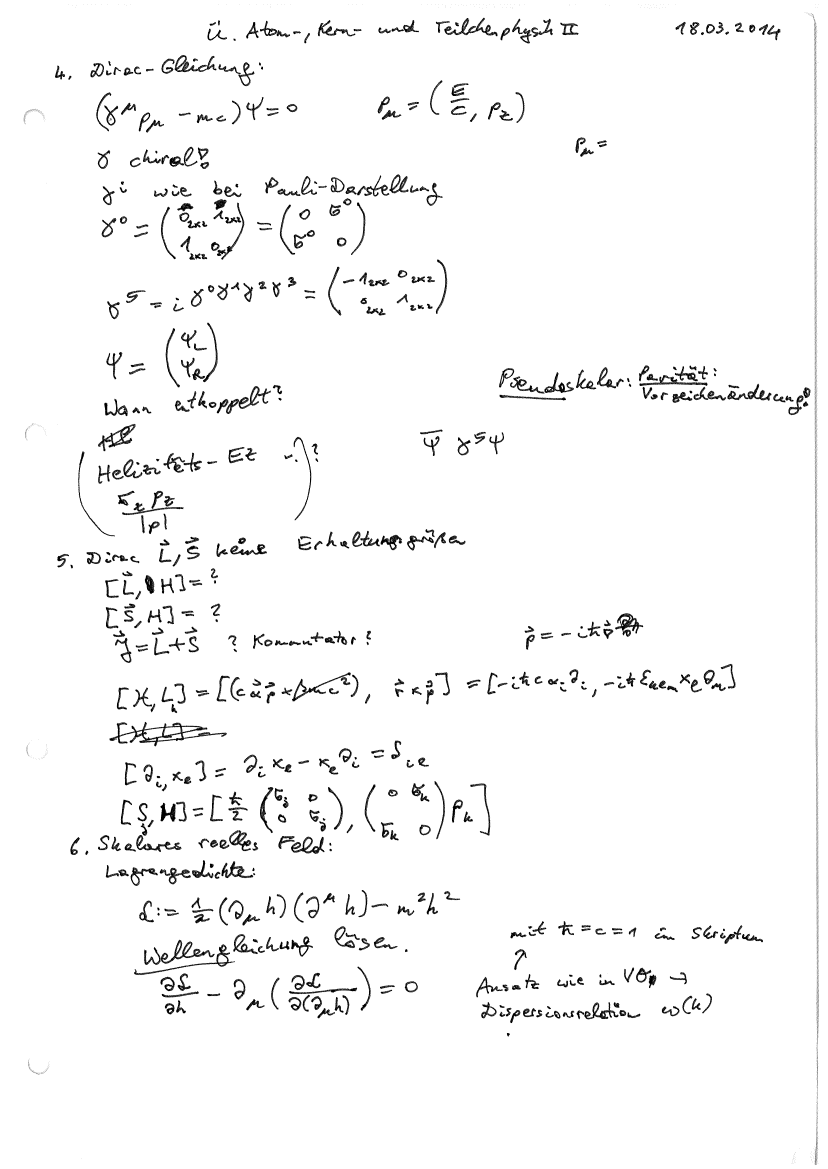 Ü. Atom-, Kern- und Teilchenphysik II 18.03.2014
4. Dirac-Gleichung:
(γ^μ p_μ - mc)Ψ = 0 p_μ = (E/c, p_z)
p_μ =
γ chiral!
γ^i wie bei Pauli-Darstellung
γ^0 = (0_2x2 1_2x2 ; 1_2x2 0_2x2) = (0 σ^0 ; σ^0 0)
γ^5 = i γ^0 γ^1 γ^2 γ^3 = (-1_2x2 0_2x2 ; 0_2x2 1_2x2)
Ψ = (Ψ_L ; Ψ_R)
Pseudoskalar: Parität:
Vorzeichenänderung!
Wann entkoppelt?
(Helizitäts-EZ ..?)?
Ψ̄ γ^5 Ψ
σ_z p_z / |p|
5. Dirac L⃗, S⃗ keine Erhaltungsgrößen
[L⃗, H] = ?
[S⃗, H] = ?
J⃗ = L⃗ + S⃗ ? Kommutator? p⃗ = -iħ∇⃗
[H, L_k] = [(c α⃗ p⃗ + βmc²), r⃗ × p⃗] = [-iħc α_i ∂_i, -iħ ε_kem x_e ∂_m]
[H, L] =
[∂_i, x_e] = ∂_i x_e - x_e ∂_i = δ_ie
[S_j, H] = [ħ/2 (σ_j 0 ; 0 σ_j), (0 σ_k ; σ_k 0) p_k]
6. Skalares reelles Feld:
Lagrangedichte:
ℒ := 1/2 (∂_μ h)(∂^μ h) - m²h²
Wellengleichung lösen.
mit ħ = c = 1 im Skriptum
↑
∂ℒ/∂h - ∂_μ (∂ℒ/∂(∂_μ h)) = 0
Ansatz wie in VO →
Dispersionsrelation ω(k)